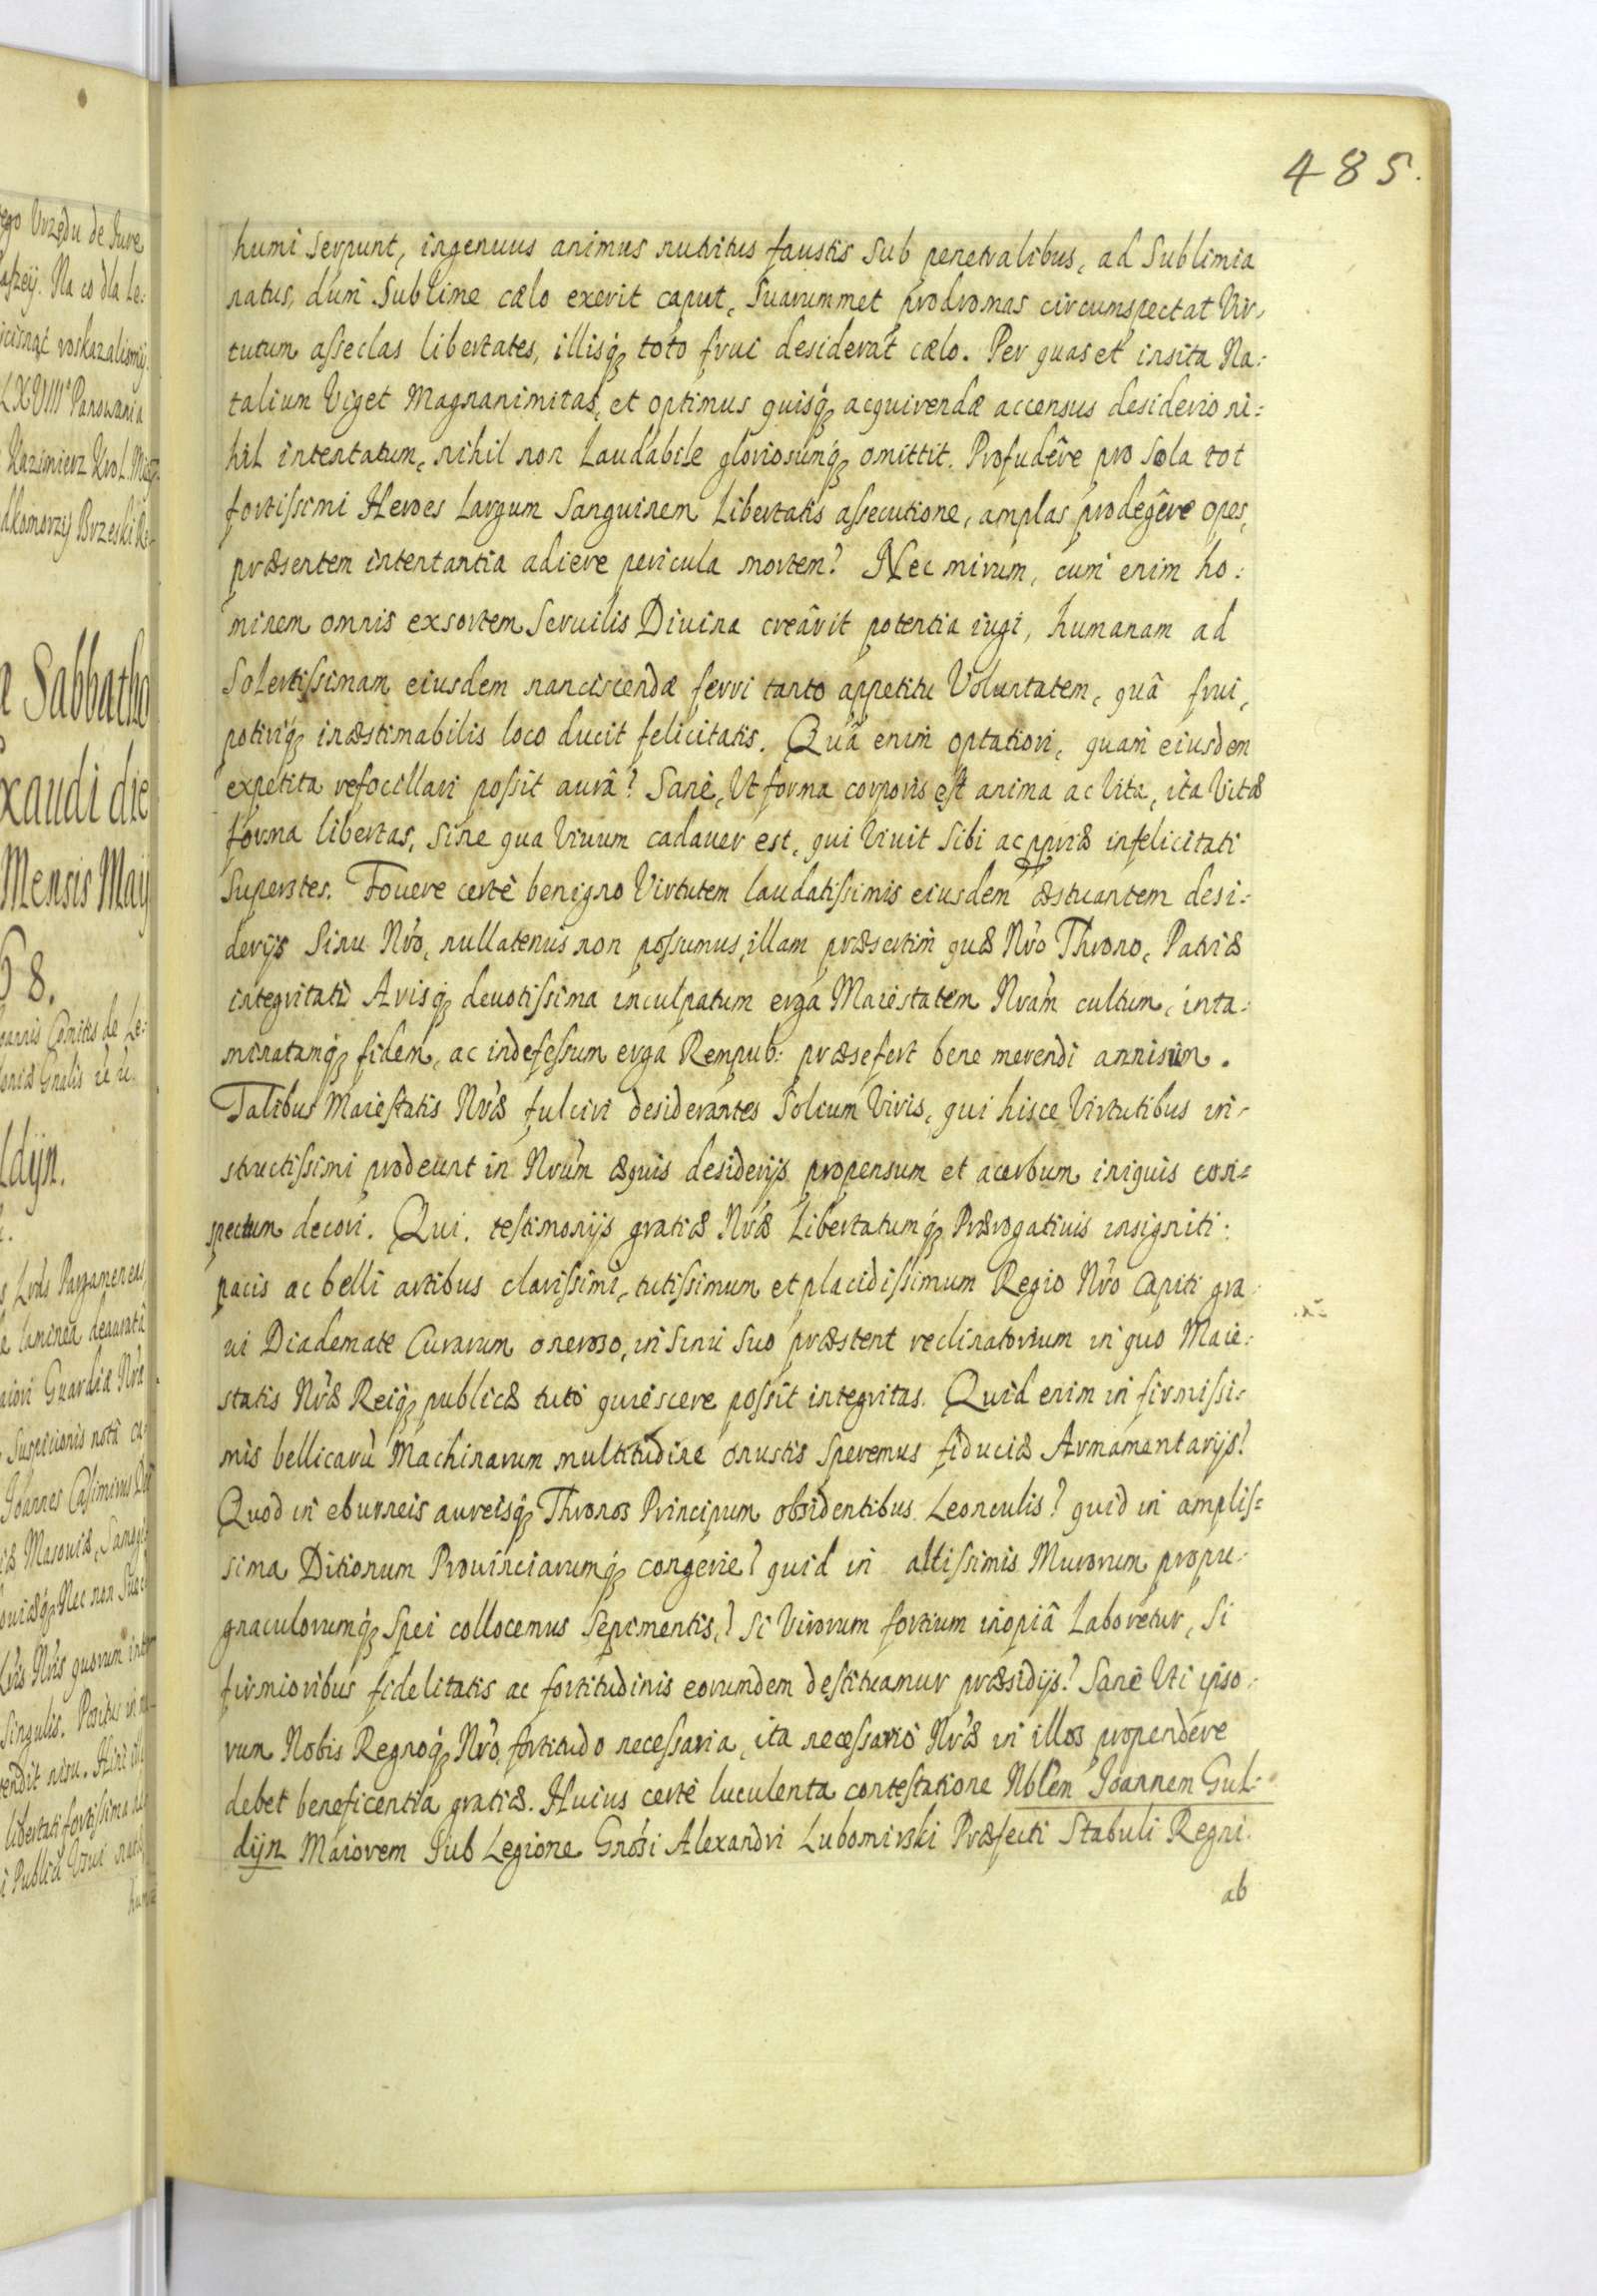 485.
humi serpunt, ingenuus animus nutritus faustis sub penetralibus, ad Sublimia
natus, dum Sublime cælo exerit caput, Suarummet prodromas circumspectat Vir-
tutum asseclas libertates, illisq́ꝫ toto frui desiderat cælo. Per quas et insita Na:
talium Viget Magnanimitas, et optimus quisq́ꝫ acquirendæ accensus desiderio ni:
hil intentatum, nihil non Laudabile gloriosumq́ꝫ omittit. Profudêre pro Sola tot
fortissimi Heroes Largum Sanguinem Libertatis assecutione, amplas prodegêre opes,
præsentem intentantia adiere pericula mortem? Nec mirum, cum enim ho:
minem omnis exsortem Seruilis Diuina creârit potentia iugi, humanam ad
Solertissimam eiusdem nanciscendæ ferri tanto appetitu Voluntatem, quâ frui,
potiriq́ꝫ inæstimabilis loco ducit felicitatis. Quâ enim optatiori, quam eiusdem
expetita refocillari possit aurâ? Sanè, Ut forma corporis est anima ac Vita, ita Vitæ
forma libertas, Sine qua Viuum cadauer est, qui Viuit Sibi ac ppriæ infelicitati
Superstes. Fouere certè benigno Virtutem laudatissimis eiusdem æstuantem desi:
derijs Sinu Nr̃o, nullatenus non possumus, illam præsertim quæ Nr̃o Throno, Patriæ
integritati Arisq́ꝫ deuotissima inculpatum erga Maiestatem Nrãm cultum, inta:
minatamq́ꝫ fidem, ac indefessum erga Rempub: præsefert bene merendi annisum.
Talibus Maiestatis Nr̃æ fulciri desiderantes Solium Viris, qui hisce Virtutibus in-
structissimi prodeunt in Nrũm æquis desiderijs propensum et acerbum iniquis con=
spectum decori. Qui. testimonijs gratiæ Nr̃æ Libertatumq́ꝫ Prærogatiuis insigniti:
pacis ac belli artibus clarissimi, tutissimum et placidissimum Regio Nr̃o Capiti gra
ui Diademate Curarum oneroso, in Sinu Suo præstent reclinatorium in quo Maie:
statis Nr̃æ Reiq́ꝫ publicæ tuto quiescere possit integritas. Quid enim in firmissi:
mis bellicarũ Machinarum multitudine onustis Speremus fiduciæ Armamentarijs?
Quod in eburneis aureisq́ꝫ Thronos Principum obsidentibus Leonculis? quid in amplis=
sima Ditionum Prouinciarumq́ꝫ congerie? quid in altissimis Murorum propu:
gnaculorumq́ꝫ Spei collocemus Sepimentis,? Si Virorum fortium inopiâ Laboretur, Si
firmioribus fidelitatis ac fortitudinis eorumdem destituamur præsidijs? Sanè Uti ipso:
rum Nobis Regnoq́ꝫ Nr̃o fortitudo necessaria, ita necessariò Nr̃æ in illos propendere
debet beneficentia gratiæ. Huius certè luculenta contestatione Nblem Joannem Gul:
dijn Maiorem Sub Legione Gnosi Alexandri Lubomirski Præfecti Stabuli Regni.
ab